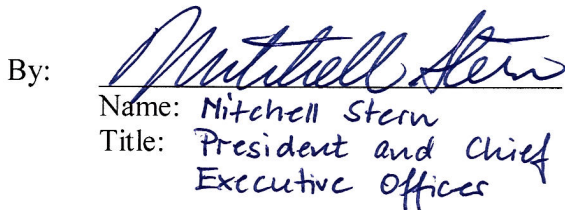 By: Mitchell Stern
Name: Mitchell Stern
Title: President and Chief
Executive Officer